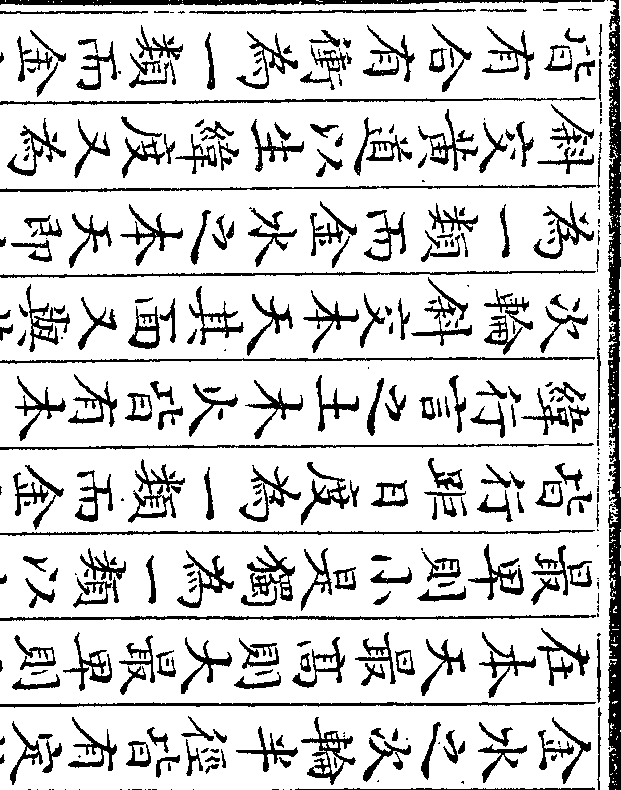 金水之次輪半徑皆有定
在本天最高則大最卑則
最卑則小是獨為一類以
皆行距日度為一類而金
緯行言之土木火皆有本
次輪斜交本天其面又與
為一類而金水之本天即
斜交黃道以生緯度又為
皆有合有衝為一類而金